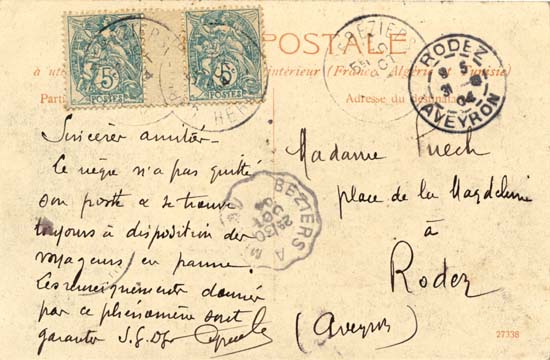 POSTALE
intérieur (France, Algérie et Tunisie)
Adresse du destinataire
5c 5c
POSTES POSTES
BEZIERS
RODEZ
31
04
AVEYRON
Sincères amitiés
Le nègre n'a pas quitté
son poste & se trouve
toujours à disposition des
voyageurs en panne
Les renseignements donnés
par ce phénomène sont
garantis S.G.D.G.
BEZIERS A
30
OCT
04
Madame Puech
place de la Magdeleine
à
Rodez
(Aveyron)
27338